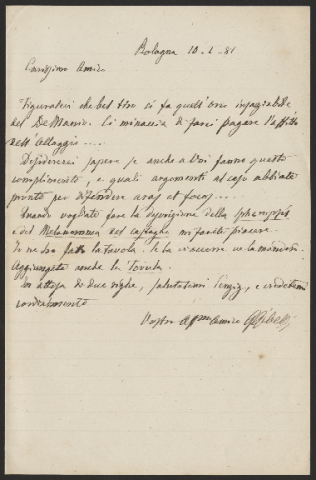 Bologna 10. 1. 81
Carissimo Amico
Figuratevi che bel tiro ci fa quell'orso insaziabile
del De Manzo. Ci minaccia di farci pagare l'affitto
dell'alloggio ....
Desidererei sapere se anche a Voi fanno questo
complimento, e quali argomenti al caso abbiate
pronti per difendere aras et focos ....
Quando vogliate fare la descrizione della
e del Melacomma del castagno mi farete piacere.
Io ne ho fatto la tavola. Se vi occorre ve la manderò.
Aggiungete anche la Torula.
In attesa di due righe, salutatemi Penzig, e credetemi
cordialmente
Vostro Aff.mo Amico GGibelli